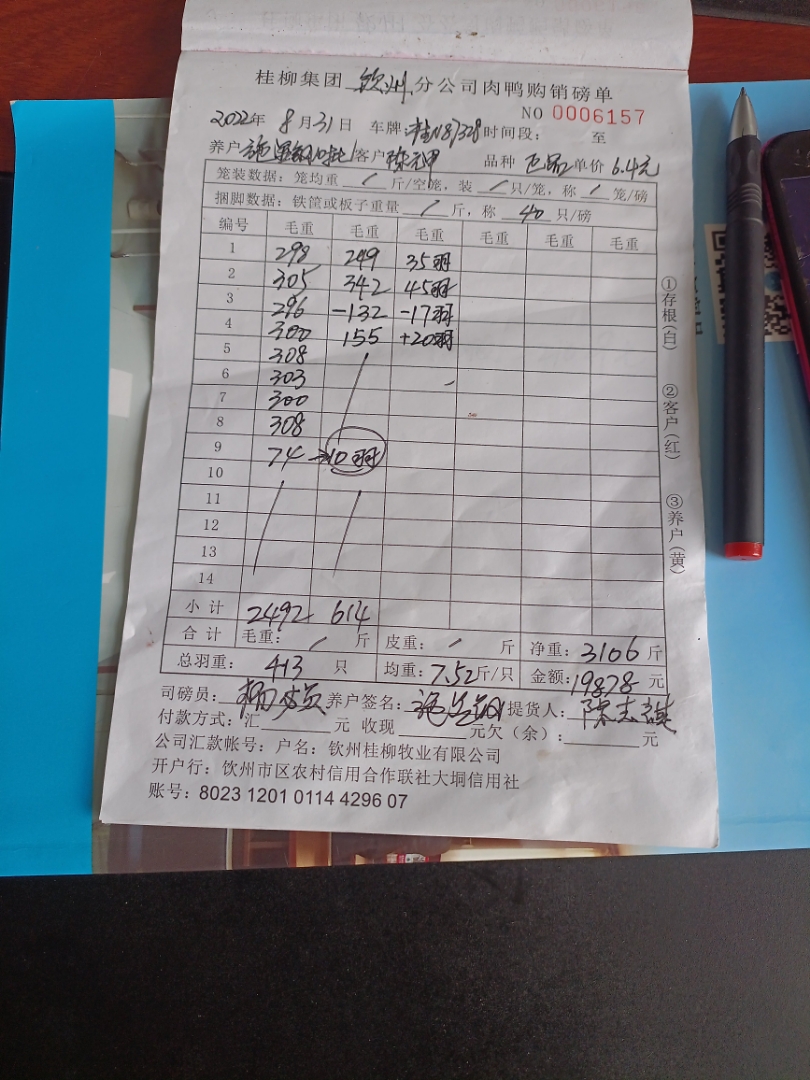 桂柳集团 钦州 分公司肉鸭购销磅单
NO 0006157
2022年 8月31日 车牌: 桂N87328 时间段: 至
养户 客户 品种 巴品 单价 6.4元
笼装数据: 笼均重 / 斤/空笼, 装 / 只/笼, 称 / 笼/磅
捆脚数据: 铁筐或板子重量 / 斤, 称 40 只/磅
编号 毛重 毛重 毛重 毛重 毛重 毛重
1 298 249 35羽
2 305 342 45羽
3 296 -132 -17羽
4 300 155 +20羽
5 308
6 303
7 300
8 308
9 74 →10羽
10
11
12
13
14
小计 2492 614
合计 毛重: / 斤 皮重: / 斤 净重: 3106 斤
总羽重: 413 只 均重: 7.52斤/只 金额: 19878 元
司磅员: 养户签名: 提货人:
付款方式: 汇 元 收现 元欠(余): 元
公司汇款帐号: 户名: 钦州桂柳牧业有限公司
开户行: 钦州市区农村信用合作联社大垌信用社
账号: 8023 1201 0114 4296 07
①存根(白) ②客户(红) ③养户(黄)